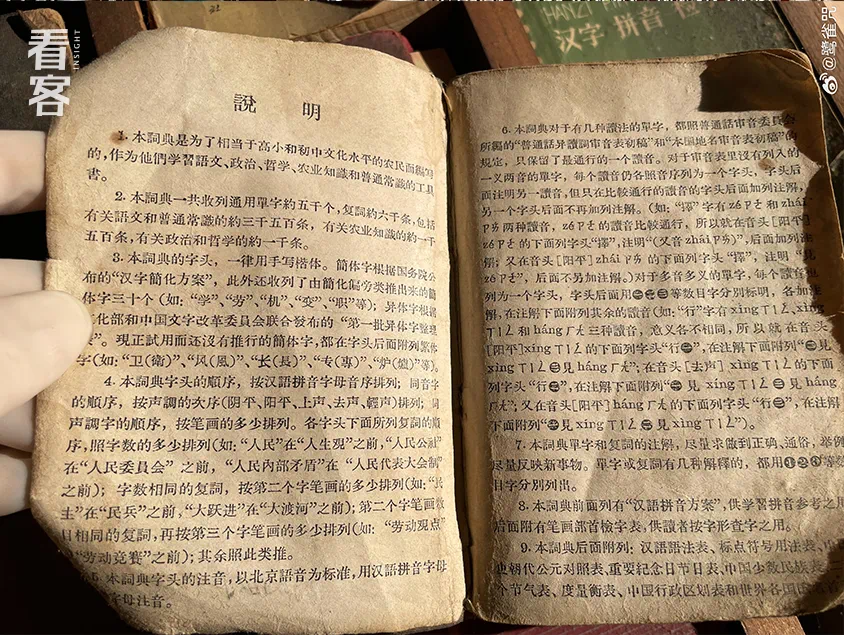 看客
INSIGHT
HANZI
汉字 拼音 检
@鹭雀咒
說 明
1. 本詞典是为了相当于高小和初中文化水平的农民而編写
的,作为他們学習語文、政治、哲学、农业知識和普通常識的工具
書。
2. 本詞典一共收列通用單字約五千个,复詞約六千条,包括
有关語文和普通常識的約三千五百条,有关农业知識的約一千
五百条,有关政治和哲学的約一千条。
3. 本詞典的字头,一律用手写楷体。簡体字根据国务院公
布的“汉字簡化方案”,此外还收列了由簡化偏旁类推出来的簡
体字三十个(如:“学”、“劳”、“机”、“变”、“职”等);异体字根据
化部和中国文字改革委員会联合發布的“第一批异体字整理
”。現正試用而还沒有推行的簡体字,都在字头后面附列繁体
字(如:“卫(衛)”、“风(風)”、“长(長)”、“专(專)”、“炉(爐)”等)。
4. 本詞典字头的順序,按汉語拼音字母音序排列;同音字
的順序,按声調的次序(阴平、阳平、上声、去声、輕声)排列;同
声調字的順序,按笔画的多少排列。各字头下面所列复詞的順
序,照字数的多少排列(如:“人民”在“人生观”之前,“人民公社”
在“人民委員会”之前,“人民內部矛盾”在“人民代表大会制”
之前);字数相同的复詞,按第二个字笔画的多少排列(如:“民
主”在“民兵”之前,“大跃进”在“大渡河”之前);第二个字笔画数
目相同的复詞,再按第三个字笔画的多少排列(如:“劳动观点”
“劳动竞賽”之前);其余照此类推。
5. 本詞典字头的注音,以北京語音为标准,用汉語拼音字母
字母注音。
6. 本詞典对于有几种讀法的單字,都照普通話审音委員会
所編的“普通話异讀詞审音表初稿”和“本国地名审音表初稿”的
規定,只保留了最通行的一个讀音。对于审音表里沒有列入的
一义两音的單字,每个讀音仍各照音序列为一个字头,字头后
面注明另一讀音,但只在比較通行的讀音的字头后面加列注解,
另一个字头后面不再加列注解。(如:“擇”字有 zé ㄗㄜˊ 和 zhái
ㄓㄞˊ 两种讀音,zé ㄗㄜˊ 的讀音比較通行,所以就在音头[阳平]
zé ㄗㄜˊ 的下面列字头“擇”,注明“(又音 zhái ㄓㄞˊ)”,后面加列注
解;又在音头[阳平] zhái ㄓㄞˊ 的下面列字头“擇”,注明“見
zé ㄗㄜˊ”,后面不另加注解。)对于多音多义的單字,每个讀音也
列为一个字头,字头后面用㊀㊁㊂等数目字分別标明,各加注
解,在注解下面附列其余的讀音(如:“行”字有 xíng ㄒㄧㄥˊ、xìng
ㄒㄧㄥˋ 和 háng ㄏㄤˊ 三种讀音,意义各不相同,所以就在音头
[阳平] xíng ㄒㄧㄥˊ 的下面列字头“行㊀”,在注解下面附列“㊁見
xìng ㄒㄧㄥˋ ㊂見 háng ㄏㄤˊ”;在音头[去声] xìng ㄒㄧㄥˋ 的下面
列字头“行㊁”,在注解下面附列“㊀見 xíng ㄒㄧㄥˊ ㊂見 háng
ㄏㄤˊ”;又在音头[阳平] háng ㄏㄤˊ 的下面列字头“行㊂”,在注解
下面附列“㊀見 xíng ㄒㄧㄥˊ ㊁見 xìng ㄒㄧㄥˋ”)。
7. 本詞典單字和复詞的注解,尽量求做到正确、通俗,举例
尽量反映新事物。單字或复詞有几种解釋的,都用❶❷❸等数
目字分別列出。
8. 本詞典前面列有“汉語拼音方案”,供学習拼音参考之用
后面附有笔画部首檢字表,供讀者按字形查字之用。
9. 本詞典后面附列:汉語語法表、标点符号用法表、中
史朝代公元对照表、重要紀念日节日表、中国少数民族表、二
个节气表、度量衡表、中国行政区划表和世界各国